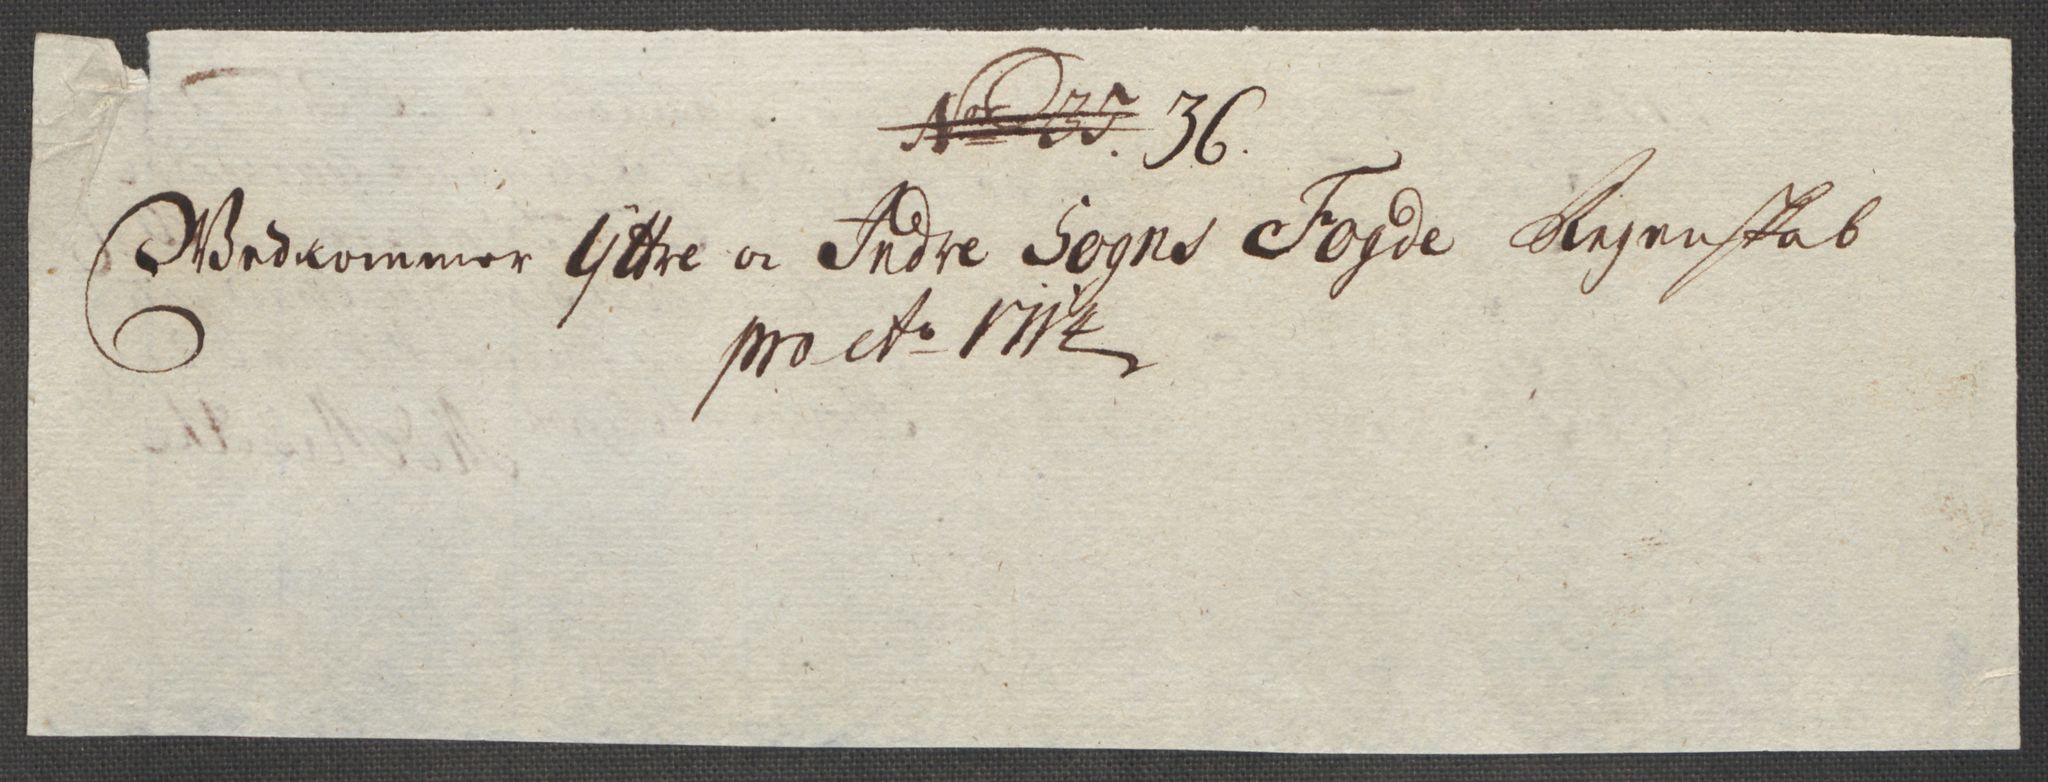 No 35. 36.
Vedkommer Yttre oc Indre Sogns Fogde Regenskab
pro Ao 1714